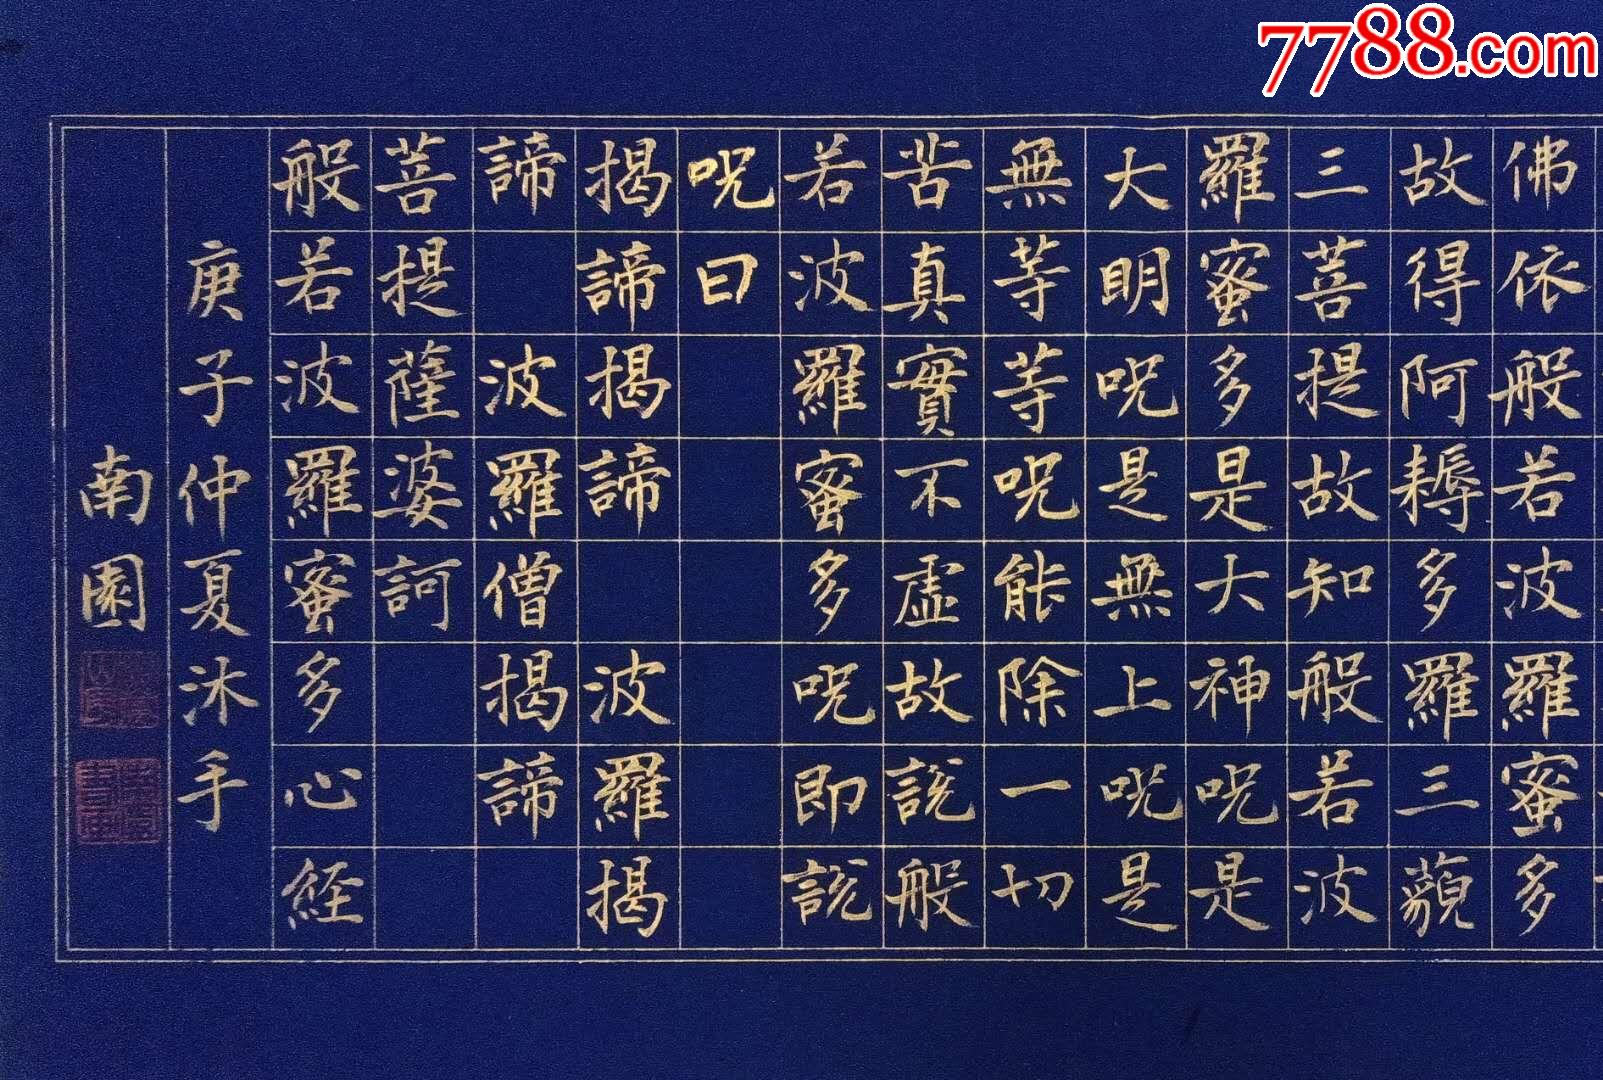 7788.com
佛依般若波羅蜜多
故得阿耨多羅三藐
三菩提故知般若波
羅蜜多是大神呪是
大明呪是無上呪是
無等等呪能除一切
苦真實不虛故說般
若波羅蜜多呪即說
呪曰
揭諦揭諦波羅揭
諦波羅僧揭諦
菩提薩婆訶
般若波羅蜜多心経
庚子仲夏沐手
南園